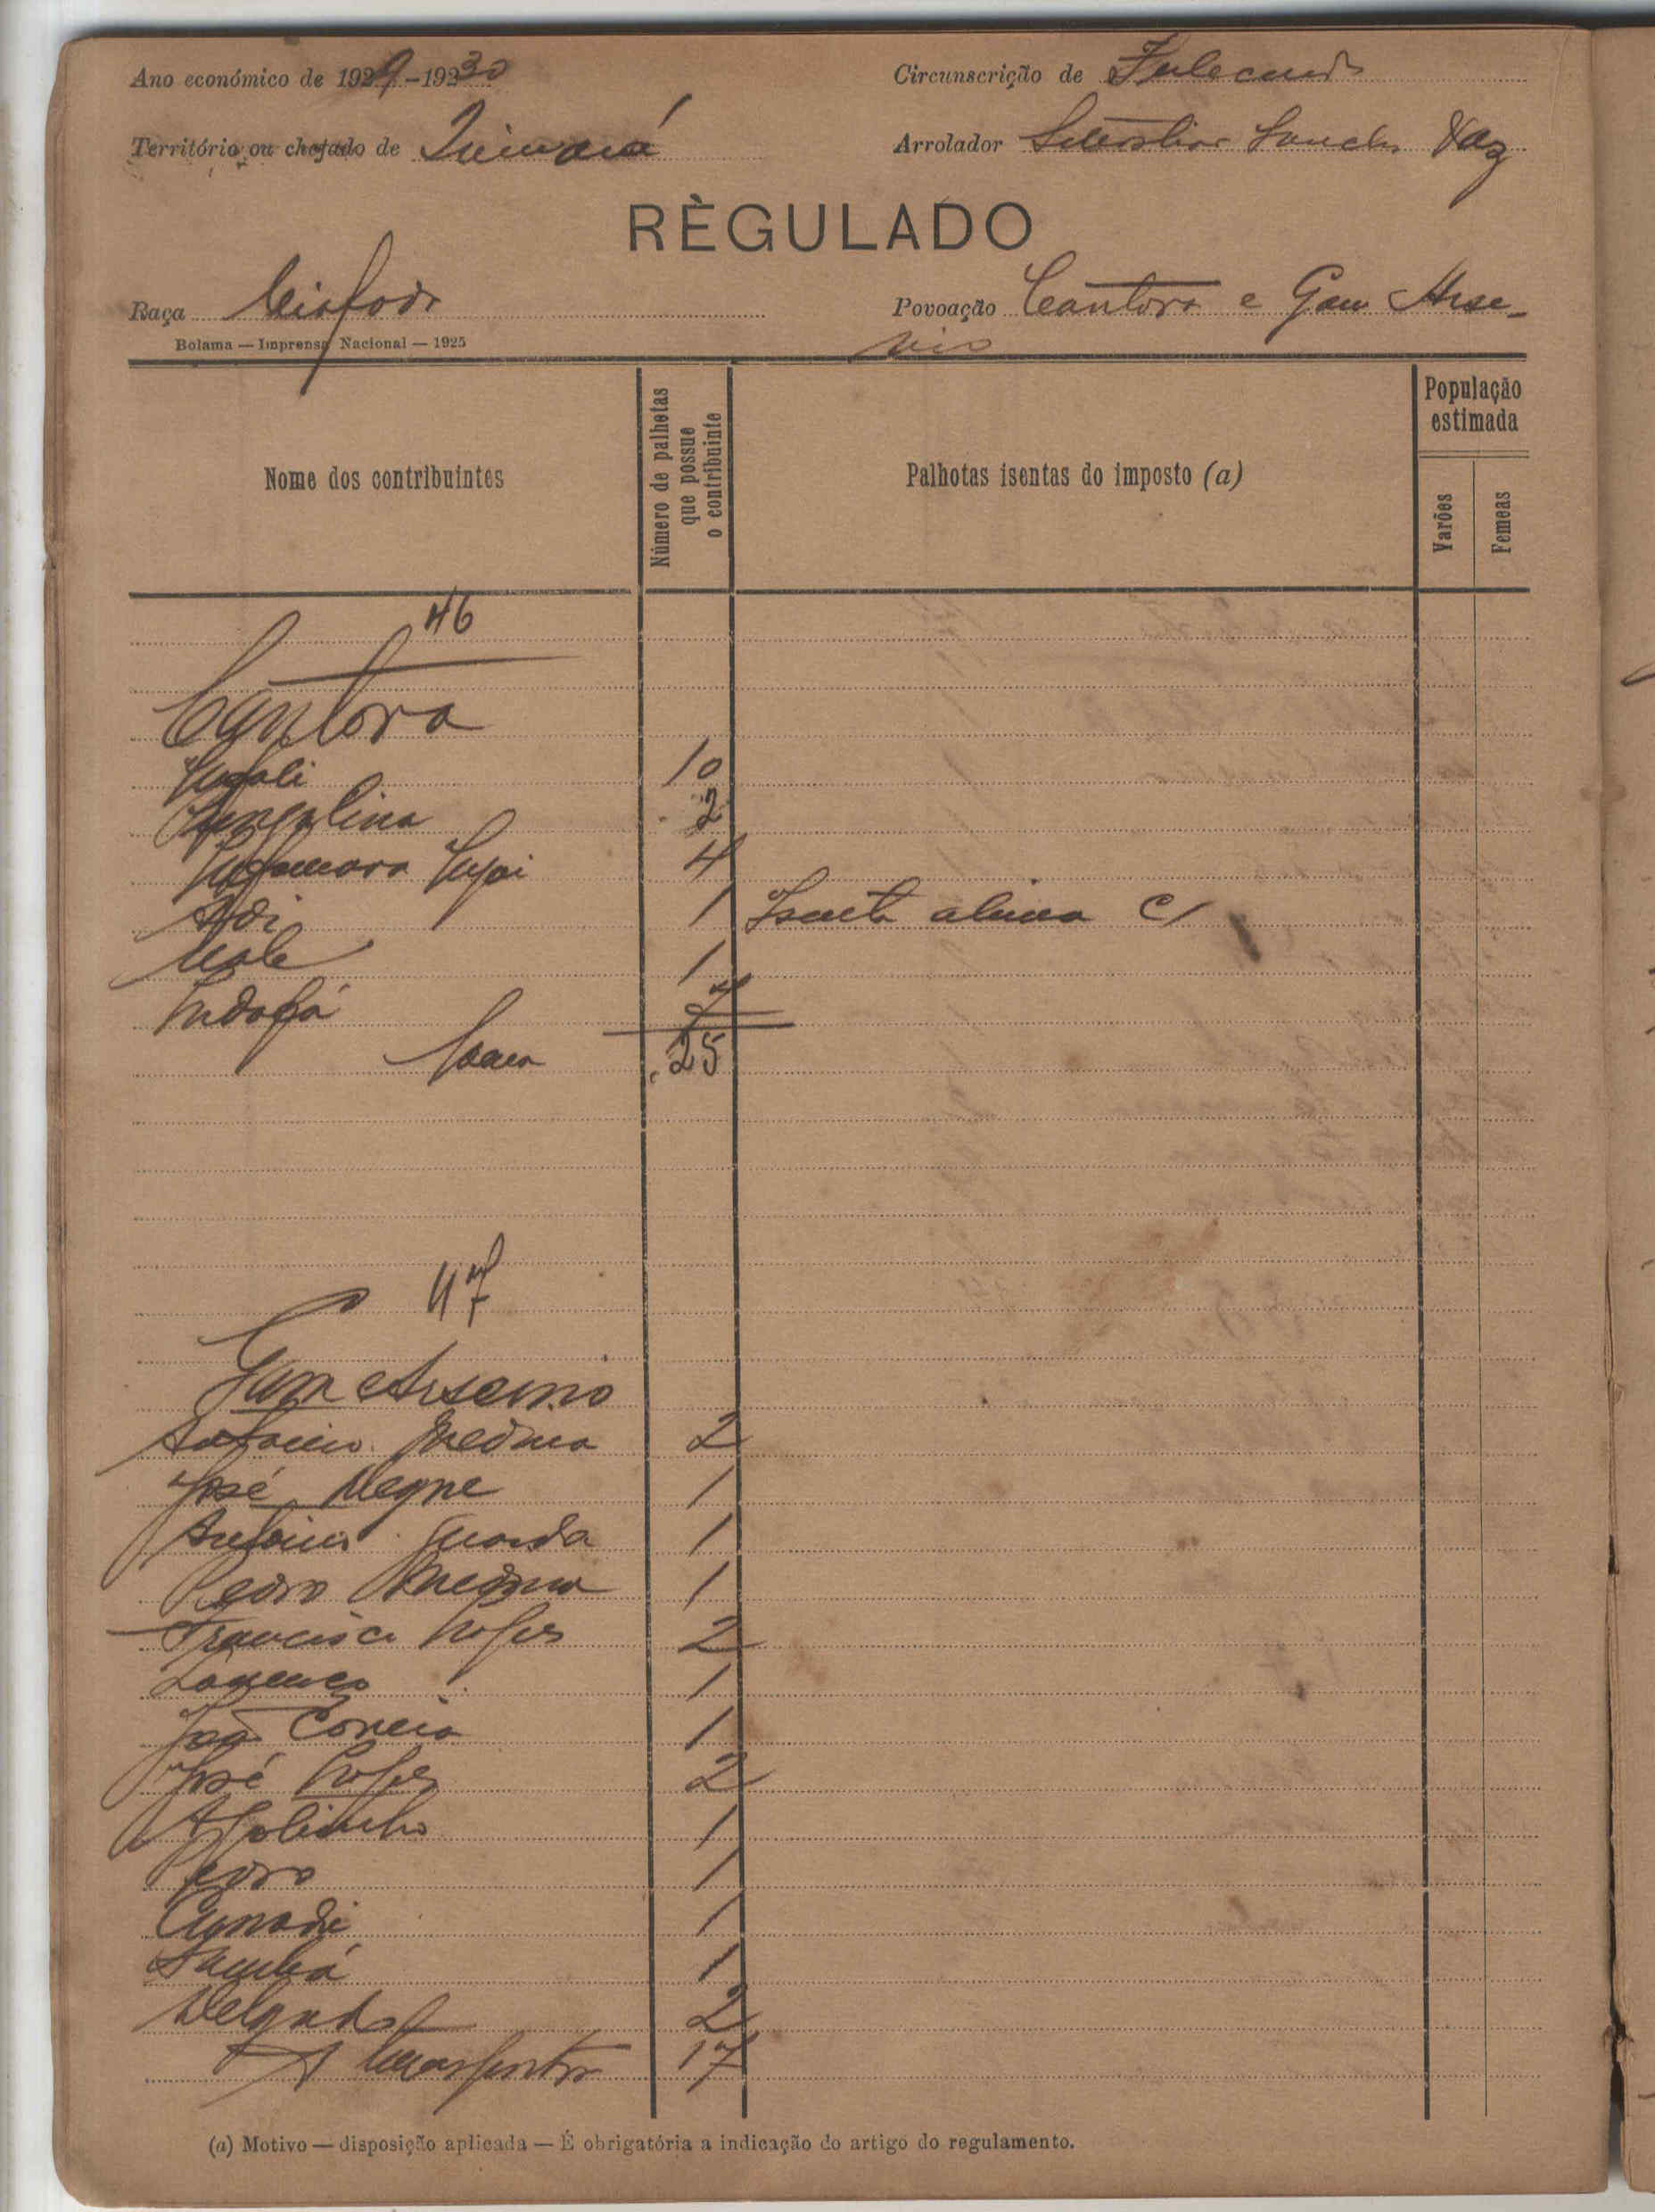 Ano económico de 1929-1930
Circunscrição de Fulacunda
Território ou chefado de Quinará
Arrolador Sanches Vaz
RÈGULADO
Raça Biafada
Povoação Cantora e Gam Arse-
nio
Bolama — Imprensa Nacional — 1925
Nome dos contribuintes
Número de palhotas que possue o contribuinte
Palhotas isentas do imposto (a)
População estimada
Varões
Femeas
46
Cantora
10
Angalina 2
4
1 Isenta alinea c/
1
7
Soma 25
47
Gam Arsenio
Antonio 2
José Negne 1
Antonio Guarda 1
Pedro 1
Francisca Lopes 2
Lourenço 1
João Correia 1
José Lopes 2
1
Pedro 1
1
1
Delgado 2
A transportar 17
(a) Motivo — disposição aplicada — É obrigatória a indicação do artigo do regulamento.